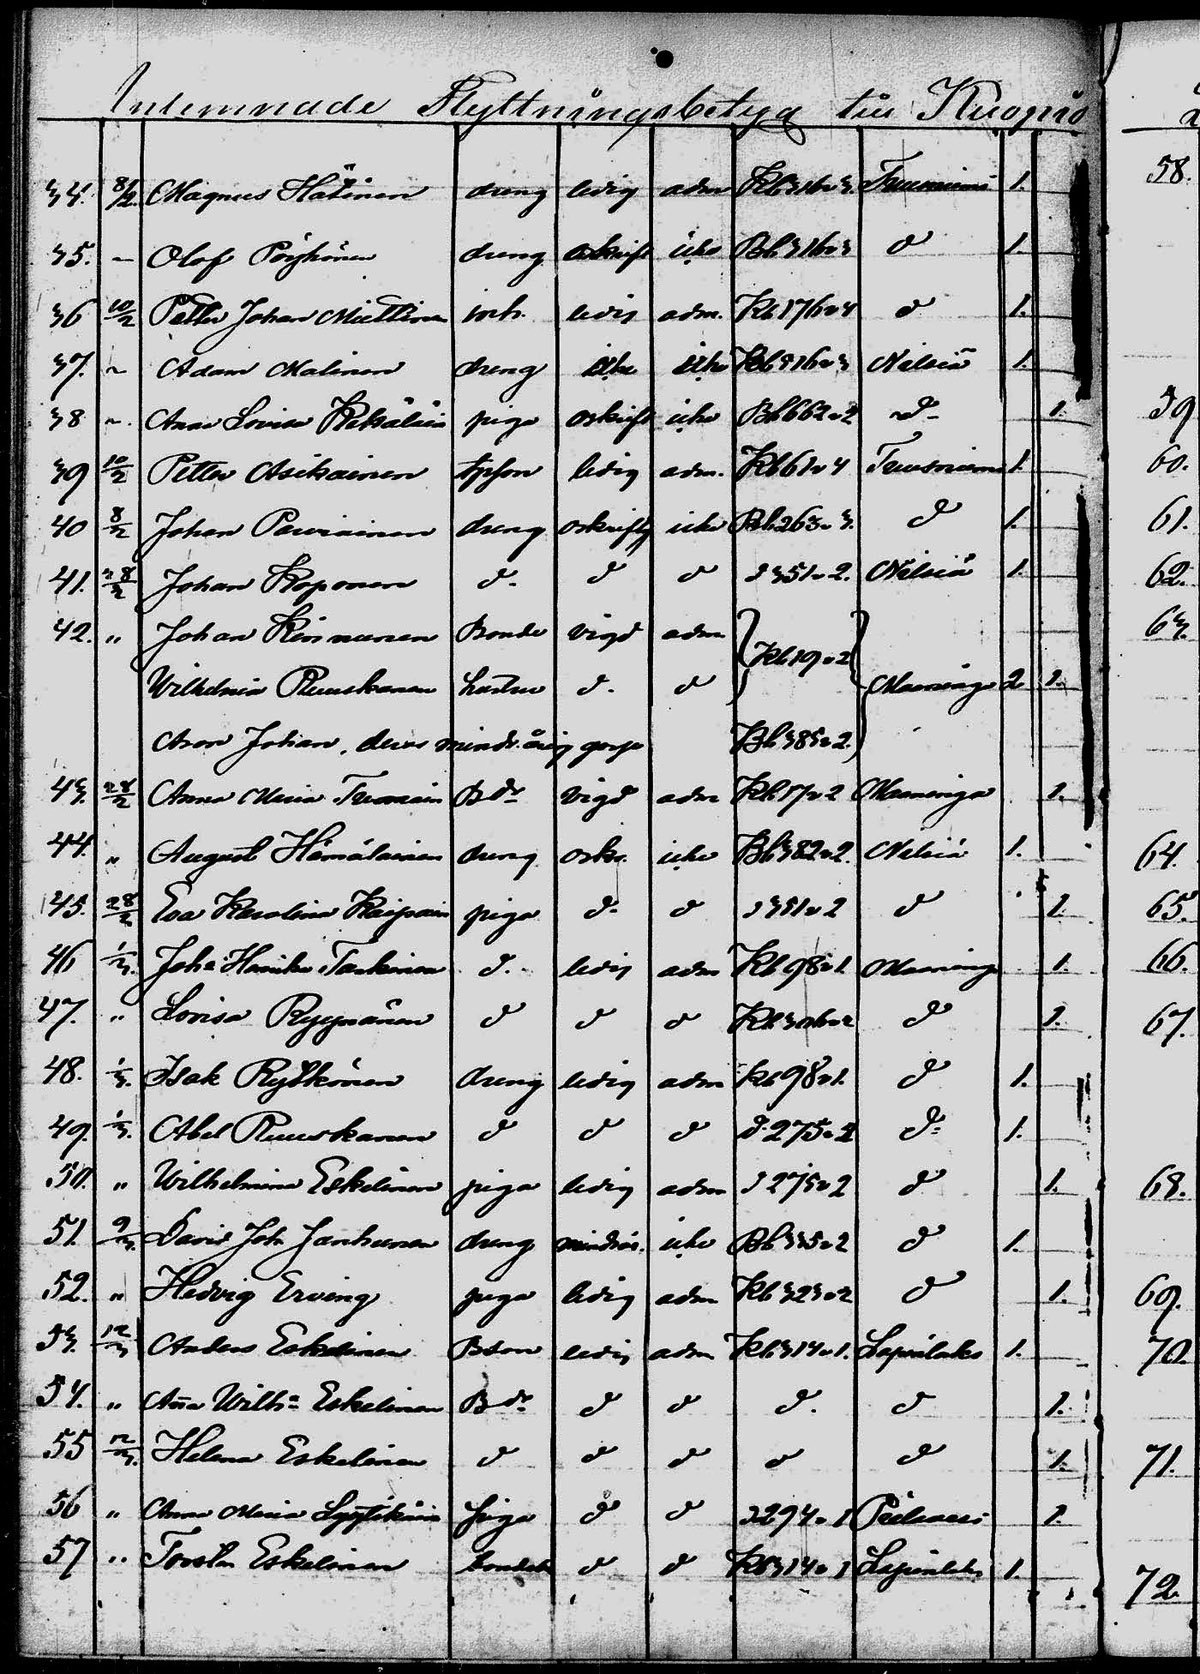 Inlemnade Flyttningsbetyg till Kuopio
34. 8/2 Magnus Hätinen dreng ledig adm Kb 316 3. Tuusniemi 1.
35. – Olof Pöyhönen dreng oskrift icke Bb 316 3 d 1.
36 10/2 Petter Johan Miettinen inh. ledig adm. Kb 176 4 d 1.
37. ~ Adam Malinen dreng icke icke Kb 316 3 Nilsiä 1.
38 ~. Anna Lovisa piga oskrift icke Bb 662 2 d- 1.
39 10/2 Petter Asikainen ledig adm. Kb 61 4 Tuusniemi 1.
40 8/2 Johan Parviainen dreng oskrift icke Bb 263 3. d 1.
41. 28/2 Johan Koponen d. d d d 351 2. Nilsiä 1.
42. " Johan Kinnunen Bonde vigd adm Kb 19 2
Wilhelmina Ruuskanen hustru d. d Maaninga 2 1.
Aron Johan, deras mindreårig gosse Bb 385 2.
43. 28/2 Anna Maria Bdr vigd adm Kb 17 2 Maaninga 1.
44. " August Hämäläinen dreng oskr. icke Bb 382 2. Nilsiä 1.
45. 28/2 Eva Karolina piga d. d d 351 2 d 1.
46 1/3. Joha Henrika Tarkinen d. ledig adm Kb 98 1. Maaninga 1.
47. " Lovisa Ryynänen d d d Kb 306 2 d 1.
48. 1/3. Isak Rytkönen dreng ledig adm Kb 98 1. d 1.
49. 1/3. Abel Ruuskanen d d d d. 275 2 d. 1.
50. " Wilhelmina Eskelinen piga ledig adm d 275 2 d 1.
51. 9/3. David Joh Janhunen dreng mindreår. icke Bb 335 2 d 1.
52. " Hedvig Erving piga ledig adm Kb 323 2 d 1.
53. 12/3 Anders Eskelinen Bson ledig adm Kb 314 1. Lapinlaks 1.
54. " Aña Wilha Eskelinen Bdr d d d. d 1.
55 12/3. Helena Eskelinen d d d d d 1.
56 " Anna Maria Lyytikäin piga d d d 294 1 Pielavesi 1.
57 " Torsten Eskelinen bonde d d Kb 314 1 Lapinlaks 1.
58.
59
60.
61.
62.
63.
64.
65.
66.
67.
68.
69.
70.
71.
72.